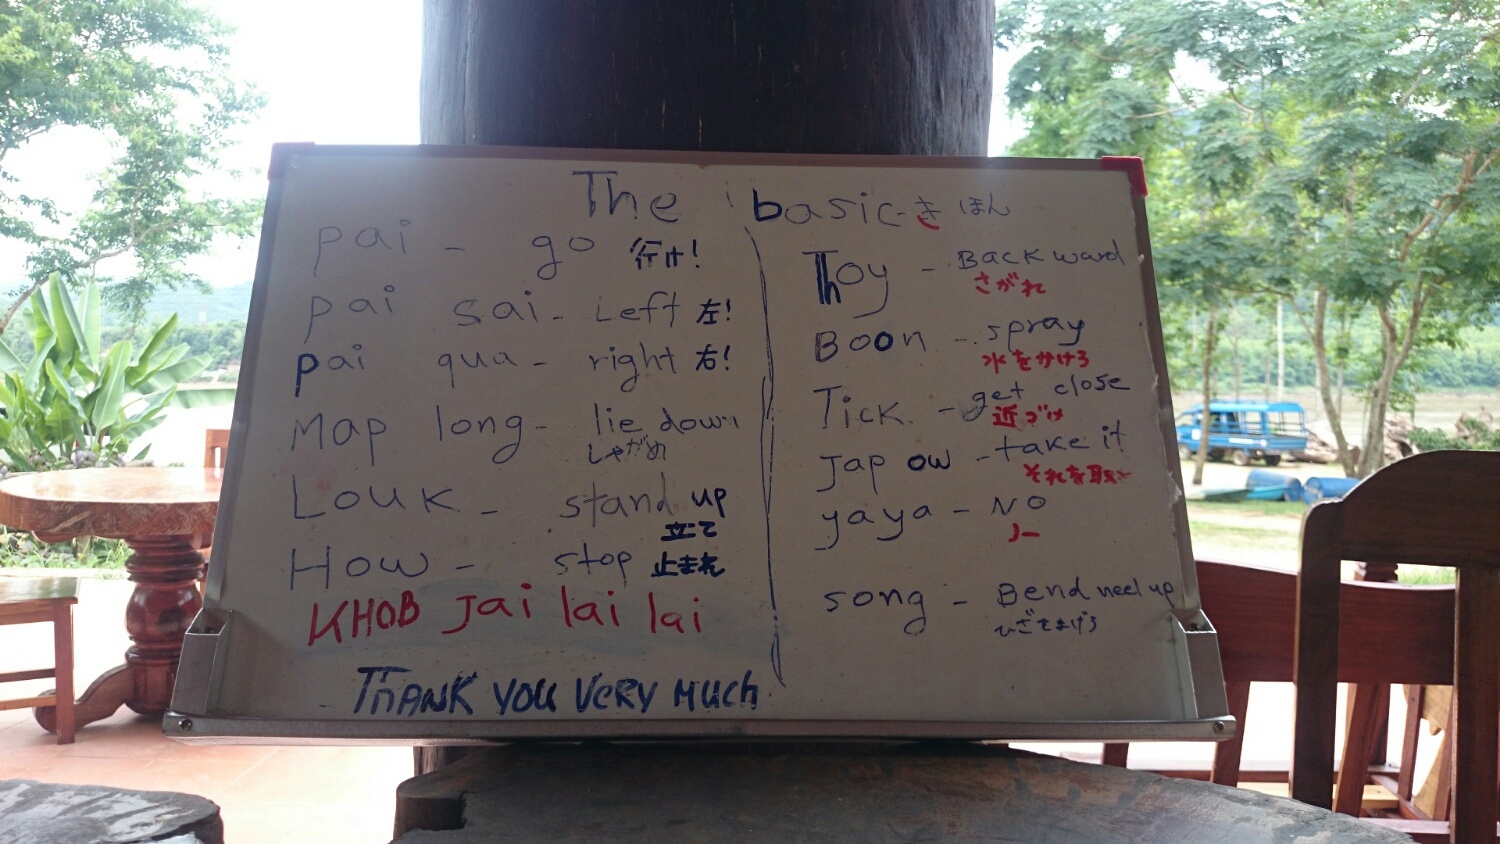 The basic - きほん
pai - go 行け!
pai sai - Left 左!
pai qua - right 右!
Map long - lie down
しゃがめ
Louk - stand up
立て
How - stop 止まれ
KHOB Jai lai lai
THANK YOU VERY MUCH
Thoy - Backward
さがれ
Boon - spray
水をかけろ
Tick - get close
近づけ
Jap ow - take it
それを取れ
yaya - NO
ノー
song - Bend neel up
ひざをまげろ